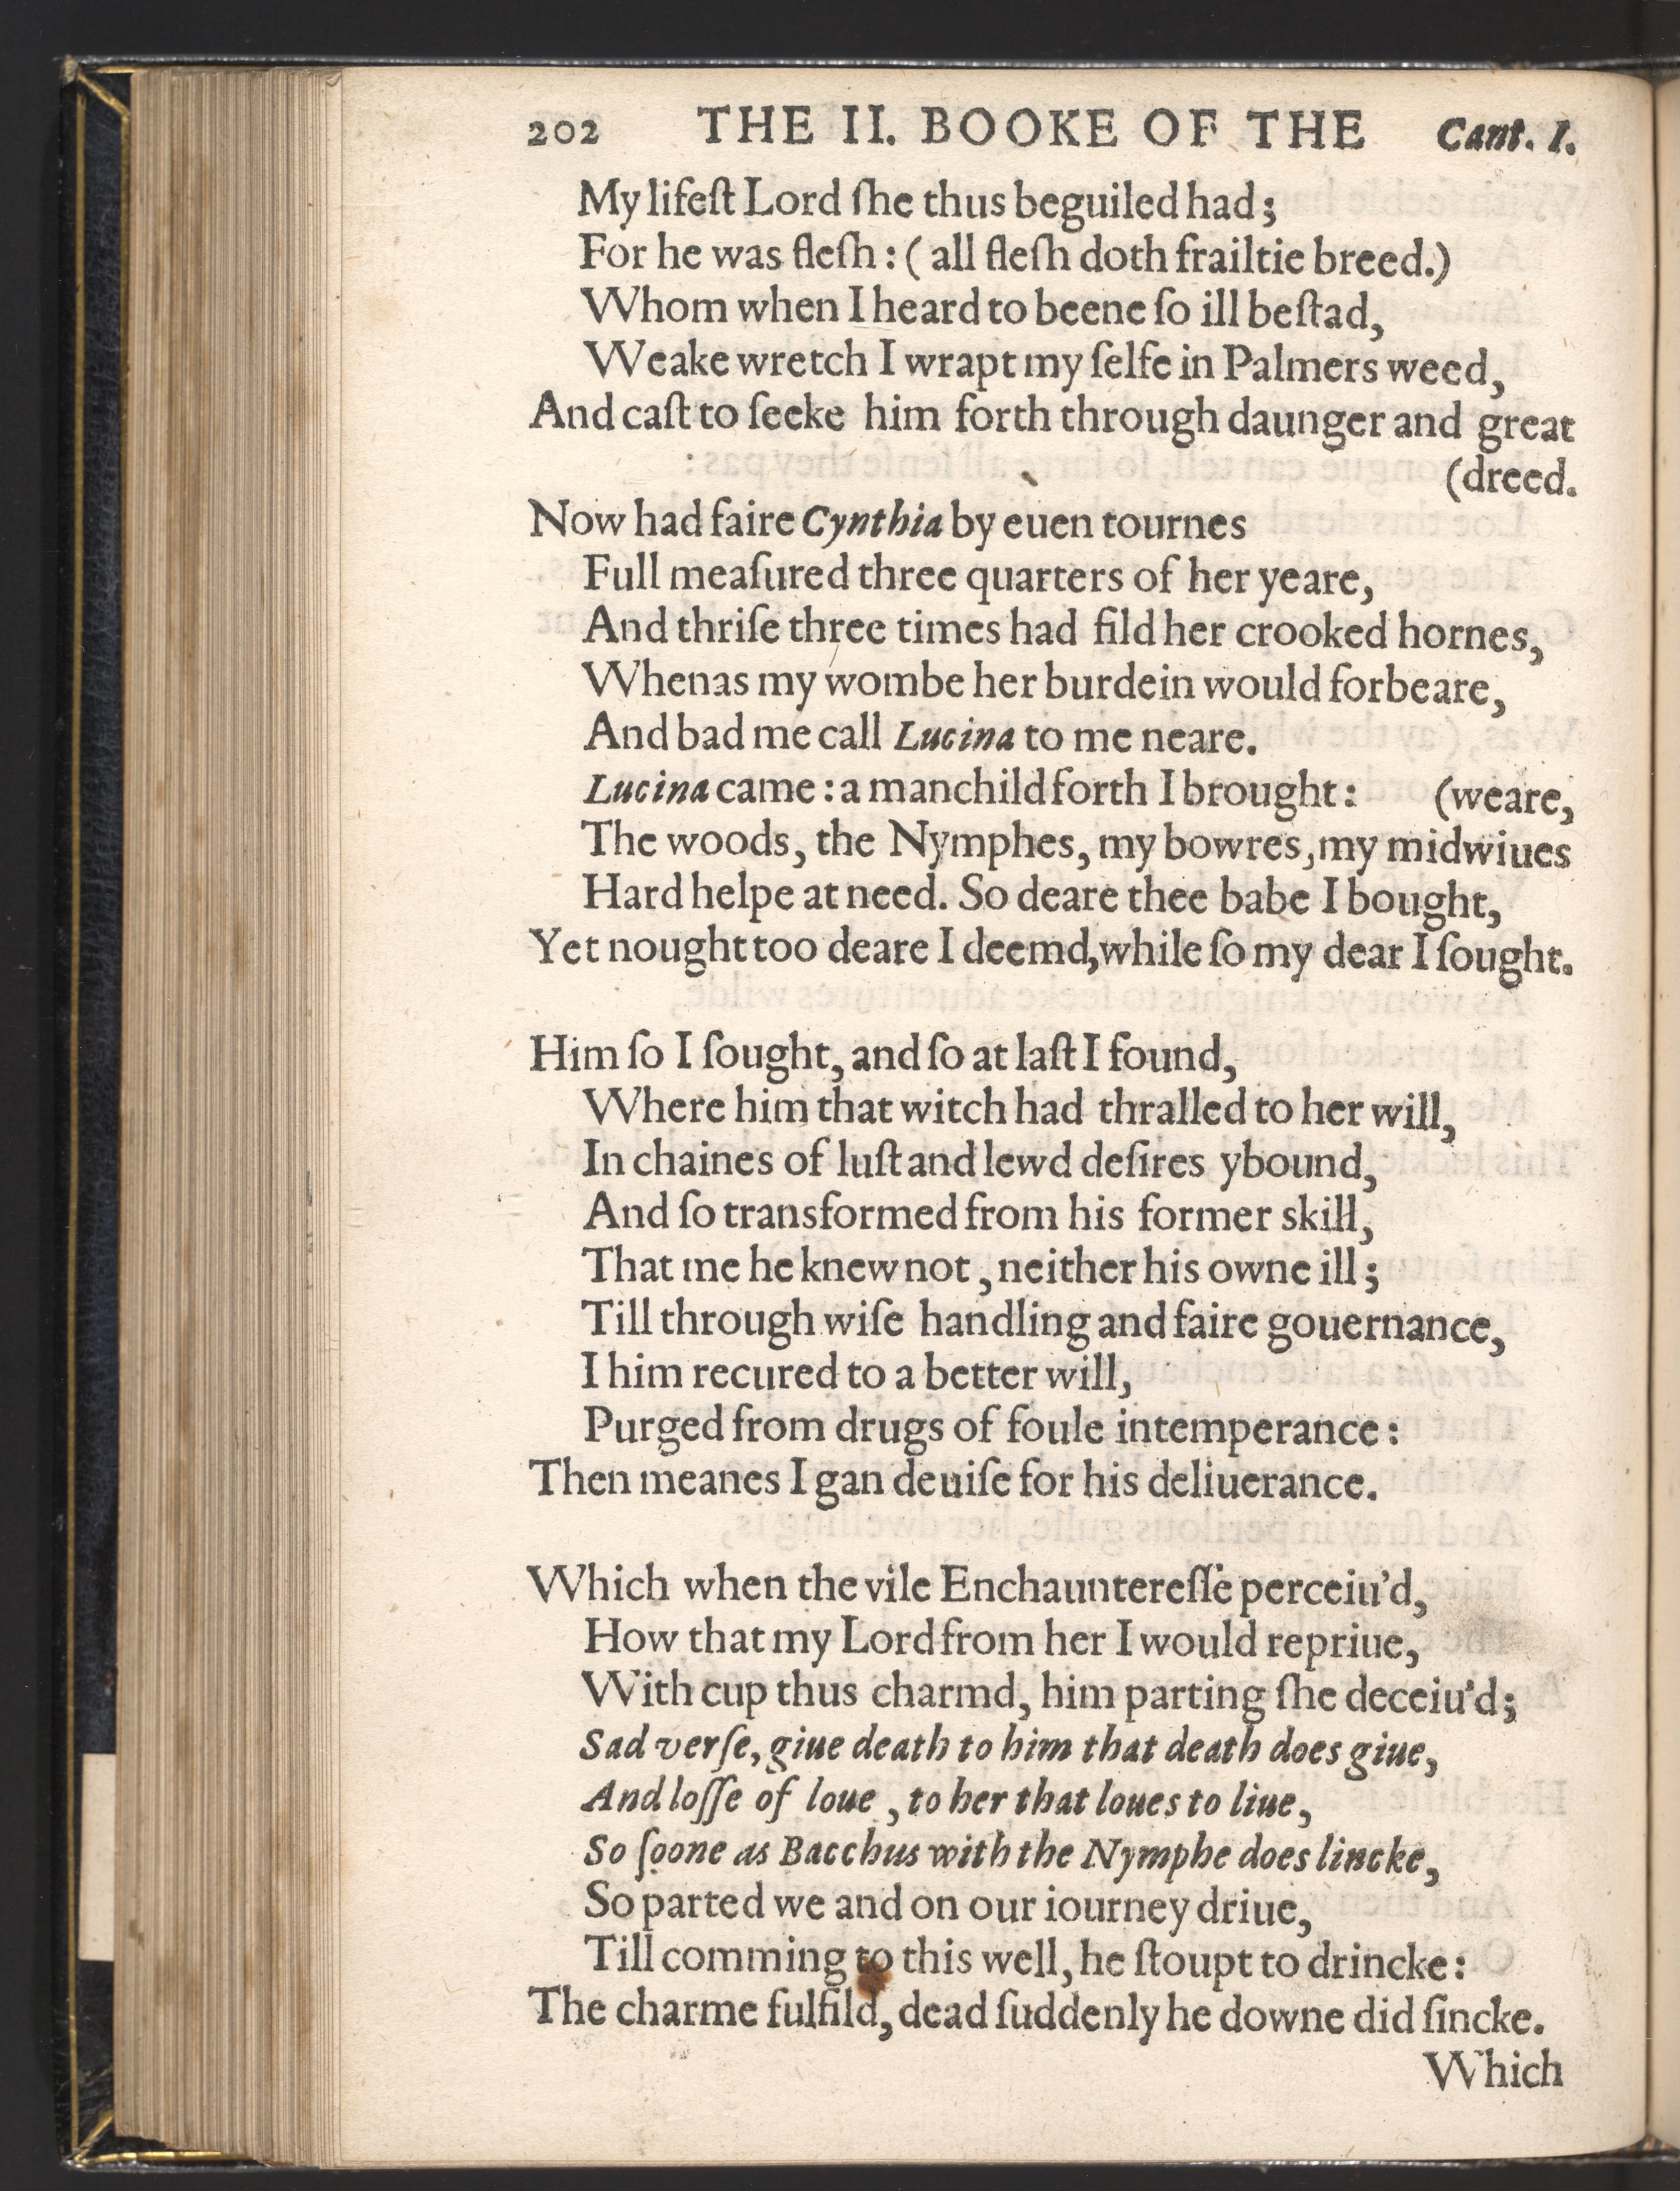 202 THE II. BOOKE OF THE Cant. I.
My lifeſt Lord ſhe thus beguiled had;
For he was fleſh: ( all fleſh doth frailtie breed.)
Whom when I heard to beene ſo ill beſtad,
Weake wretch I wrapt my ſelfe in Palmers weed,
And caſt to ſeeke him forth through daunger and great
(dreed.
Now had faire Cynthia by euen tournes
Full meaſured three quarters of her yeare,
And thriſe three times had fild her crooked hornes,
Whenas my wombe her burdein would forbeare,
And bad me call Lucina to me neare.
Lucina came: a manchild forth I brought: (weare,
The woods, the Nymphes, my bowres, my midwiues
Hard helpe at need. So deare thee babe I bought,
Yet nought too deare I deemd, while ſo my dear I ſought.
Him ſo I ſought, and ſo at laſt I found,
Where him that witch had thralled to her will,
In chaines of luſt and lewd deſires ybound,
And ſo transformed from his former skill,
That me he knew not, neither his owne ill;
Till through wiſe handling and faire gouernance,
I him recured to a better will,
Purged from drugs of foule intemperance:
Then meanes I gan deuiſe for his deliuerance.
Which when the vile Enchauntereſſe perceiu'd,
How that my Lord from her I would repriue,
With cup thus charmd, him parting ſhe deceiu'd;
Sad verſe, giue death to him that death does giue,
And loſſe of loue, to her that loues to liue,
So ſoone as Bacchus with the Nymphe does lincke,
So parted we and on our iourney driue,
Till comming to this well, he ſtoupt to drincke:
The charme fulfild, dead ſuddenly he downe did ſincke.
Which